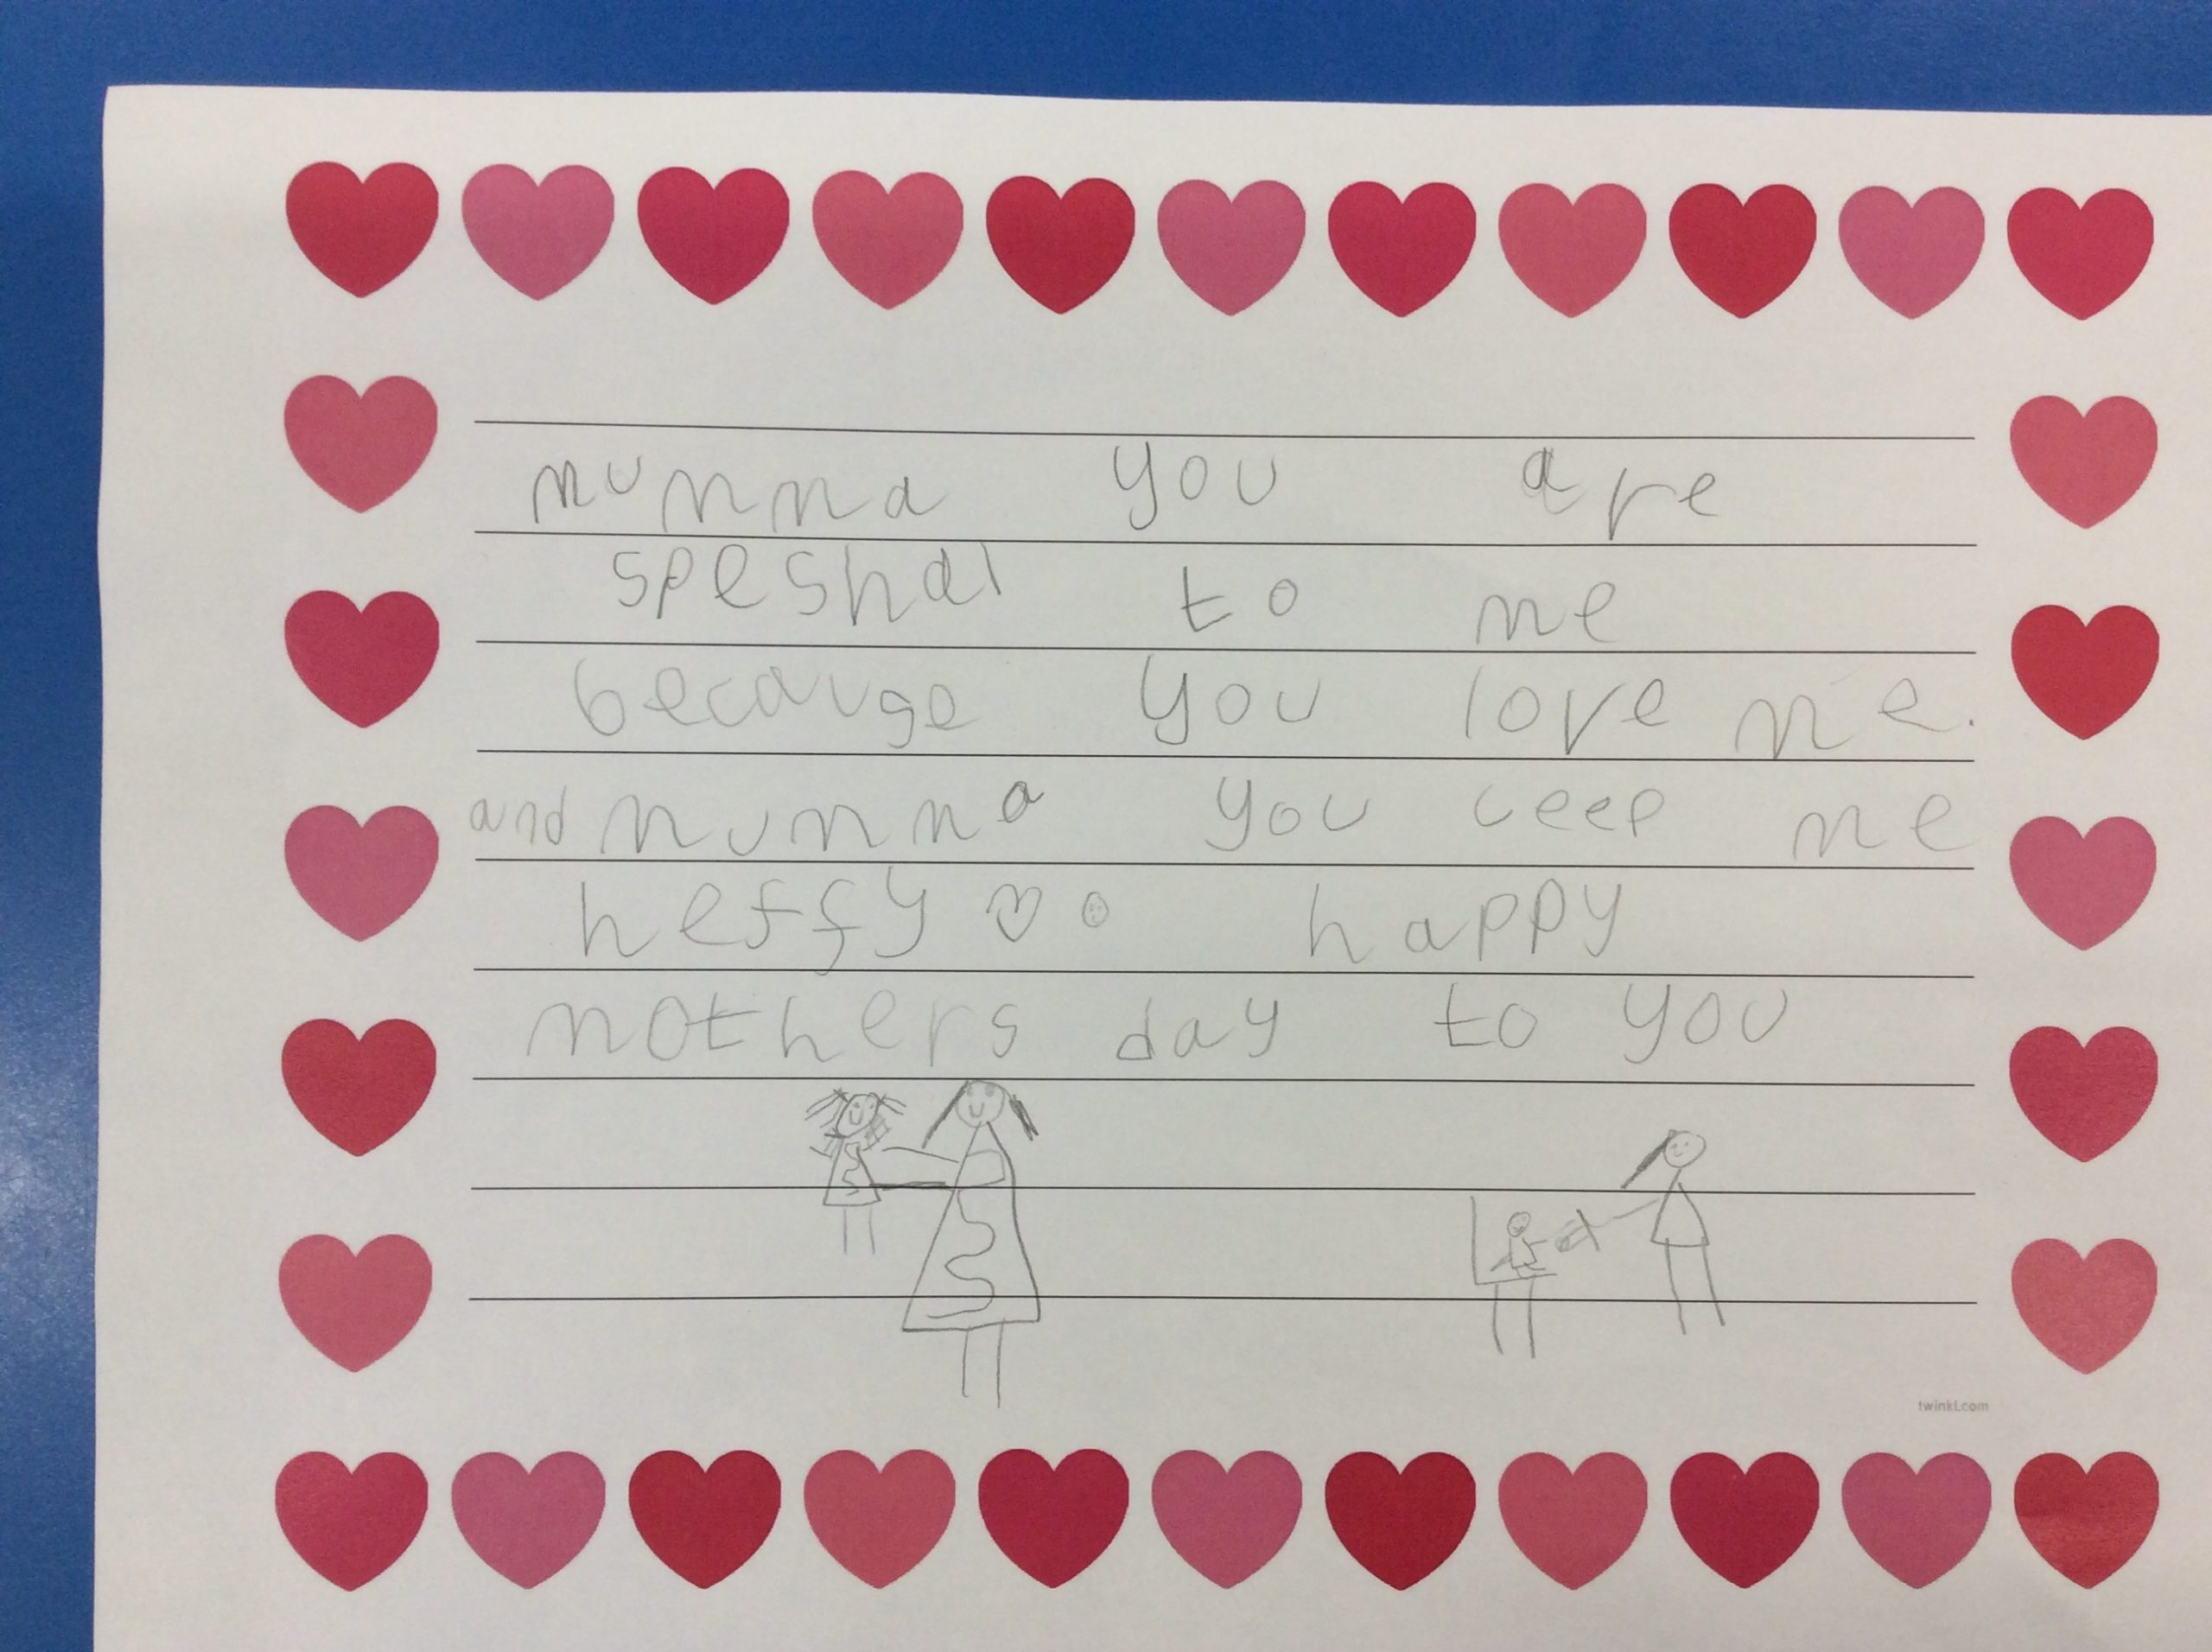 mummy you are
speshal to me
because you love me.
and mumma you ceep me
heffy happy
mothers day to you
twinkl.com